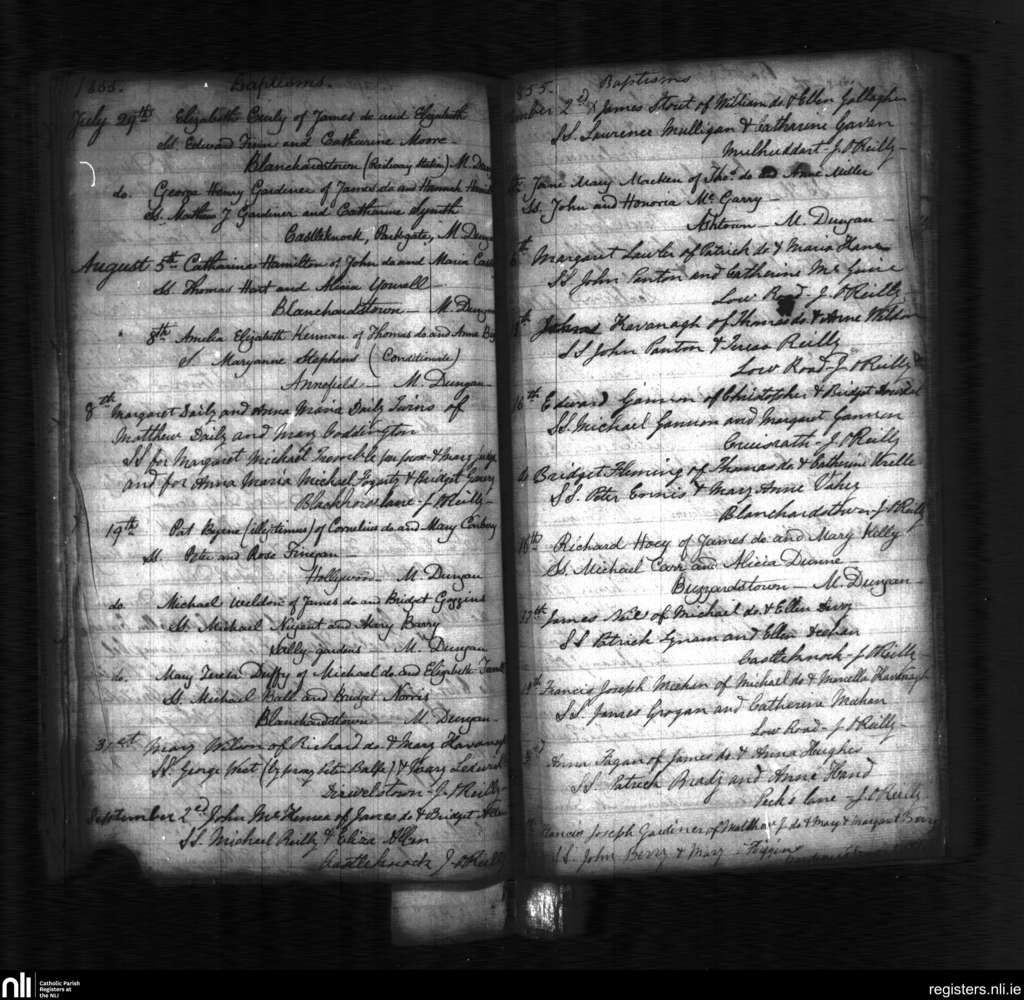 1855. Baptisms.
July 29th Elizabeth Early of James do and Elizabeth
SS. Edward Finn and Catharine Moore
Blanchardstown (Railway Station) M. Dun
do. George Henry Gardiner of James do and Hannah
SS. Mathew J Gardiner and Catharine Smyth
Castleknock, Parkgate, M Dunga
August 5th Catharine Hamilton of John do and Maria
SS. Thomas Hart and Alicia Youell
Blanchardstown M. Dungan
8th Amelia Elizabeth Kernan of Thomas do and Anne
S. Maryanne Stephens (Conditionale)
Annefield M. Dungan
8th Margaret Daily and Anna Maria Daily Twins of
Matthew Daily and Mary Coddington
SS for Margaret Michael Trumble & Mary
and for Anna Maria Michael Fogarty & Bridget
Blackhorse lane J. O'Reilly
19th Pat Byrne (illegitimus) of Cornelius do and Mary Conboy
SS. Peter and Rose Finegan
Hollywood M. Dungan
do. Michael Weldon of James do and Bridget Goggins
SS. Michael Nugent and Mary Barry
Sally-gardens M. Dungan
do. Mary Teresa Duffy of Michael do and Elizabeth
SS. Michael Ball and Bridget Norris
Blanchardstown M. Dungan
31st Mary Wilson of Richard do & Mary Kavanagh
SS. George West (by proxy Peter Balfe) & Mary
J. O'Reilly
September 2nd John of James do & Bridget
SS. Michael Reilly & Eliza Allen
Castleknock J O'Reilly
855. Baptisms
mber 2nd James Stout of William do & Ellen Gallagher
SS. Laurence Mulligan & Catherine Gavan
Mulhuddart J. O'Reilly
Jane Mary Macken of Thos. do and Anne Miller
SS. John and Honoria Mc Garry
Ashtown M. Dungan
th Margaret Lawler of Patrick do & Maria
SS John Panton and Catherine Mc Guire
Low Road J. O'Reilly
th Kavanagh of Thomas do & Anne
SS John Panton & Teresa Reilly
Low Road J. O'Reilly
16th Edward Gannon of Christopher & Bridget
SS. Michael Gannon and Margaret Gannon
Cruisrath J. O'Reilly
Bridget Fleming of Thomas do & Catherine
SS. Peter & Mary Anne
Blanchardstown J. O'Reilly
16th Richard Hoey of James do and Mary Kelly
SS. Michael Carr and Alicia Dunne
Buzzardstown M. Dungan
17th James of Michael do & Ellen
SS Patrick and Ellen
Castleknock J. O'Reilly
Francis Joseph Meehan of Michael do & Kavanagh
SS. James Grogan and Catherine Meehan
Low Road J. O'Reilly
Anna Fagan of James do & Anna Hughes
SS. Patrick Brady and Anne Hand
Peck's lane J. O'Reilly
Francis Joseph Gardiner of Matthew J. do & Mary Margaret Berry
SS. John Berry & Mary Higgins
nli
Catholic Parish
Registers at
the NLI
registers.nli.ie